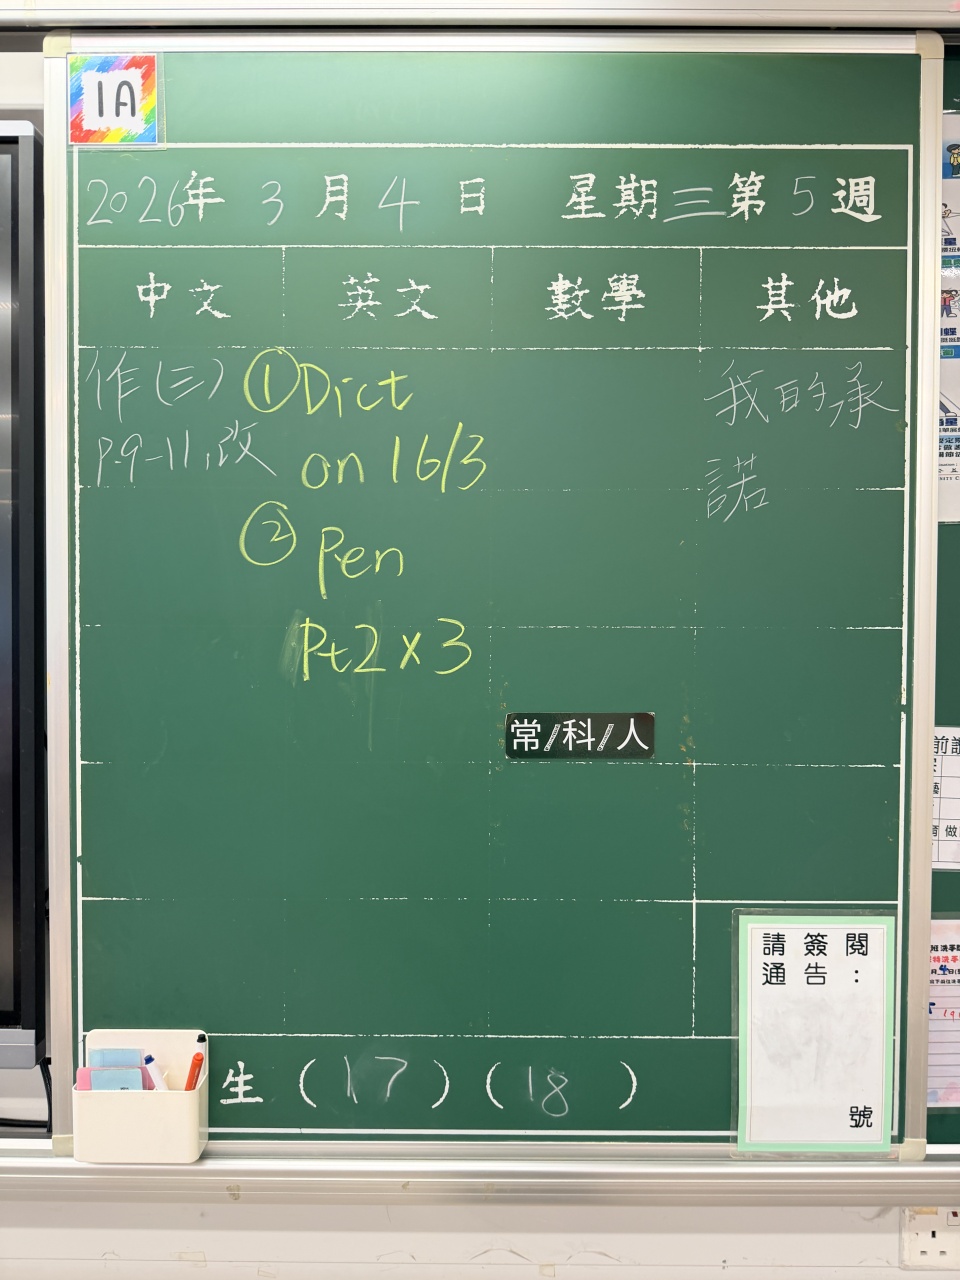 1A
2026年 3月4日 星期三第5週
中文 英文 數學 其他
作(三)
P.9-11,改
①Dict
on 16/3
②Pen
Pt2 x 3
我的承
諾
常/科/人
請簽閱
通告：
號
生(17)(18)